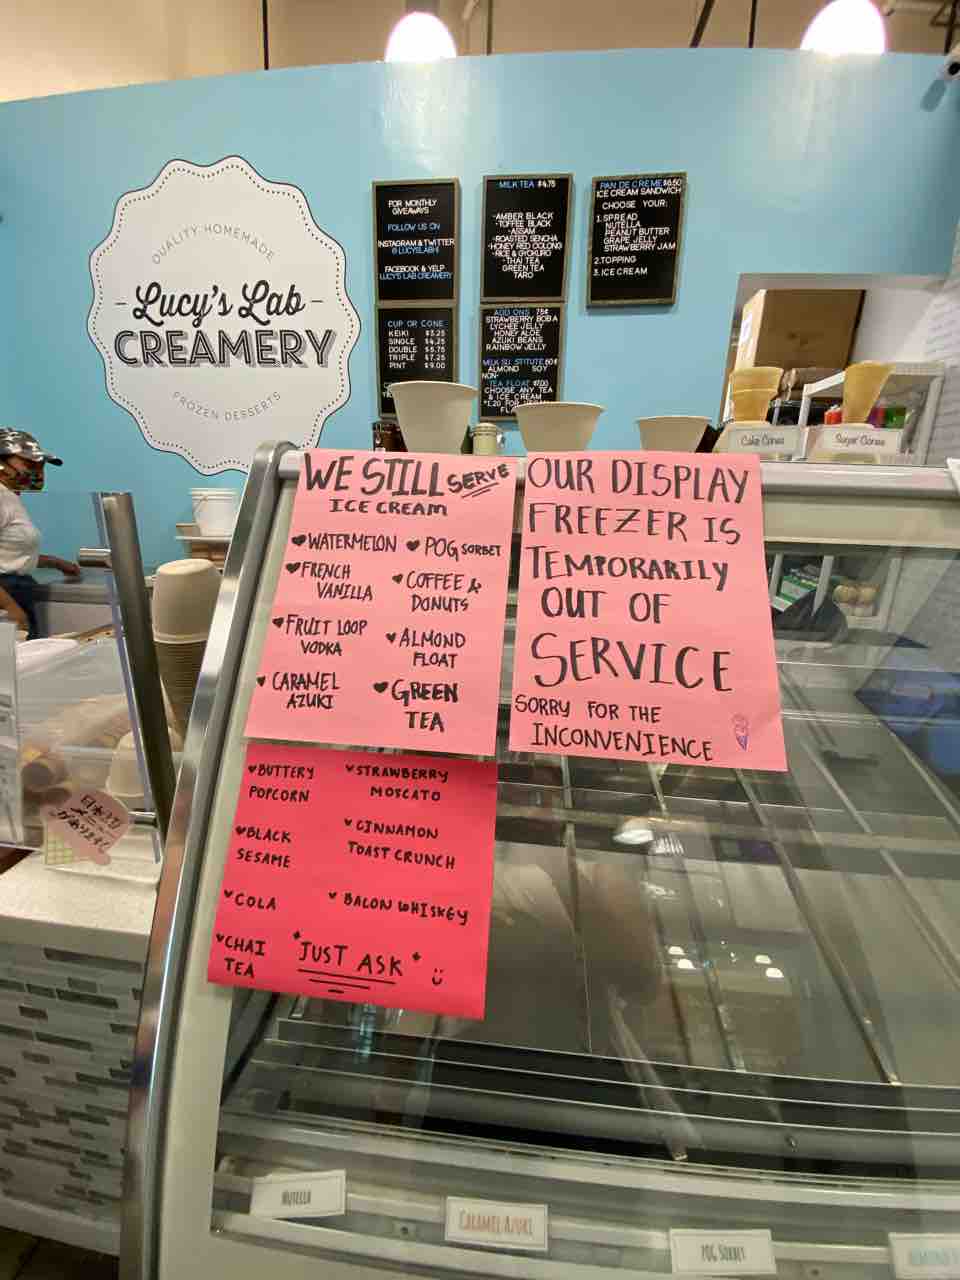 QUALITY HOMEMADE
- Lucy's Lab -
CREAMERY
FROZEN DESSERTS
FOR MONTHLY
GIVEAWAYS
FOLLOW US ON
INSTAGRAM & TWITTER
@LUCYSLABHI
FACEBOOK & YELP
LUCY'S LAB CREAMERY
CUP OR CONE
KEIKI $3.25
SINGLE $4.25
DOUBLE $5.75
TRIPLE $7.25
PINT $9.00
MILK TEA $4.75
-AMBER BLACK
-TOFFEE BLACK
-ASSAM
-ROASTED SENCHA
-HONEY RED OOLONG
-RICE & GYOKURO
-THAI TEA
GREEN TEA
TARO
ADD ONS 75¢
STRAWBERRY BOBA
LYCHEE JELLY
HONEY ALOE
AZUKI BEANS
RAINBOW JELLY
MILK SU STITUTE 50¢
ALMOND SOY
NON-
TEA FLOAT $7.00
CHOOSE ANY TEA
& ICE CREAM
PAN DE CREME $6.50
ICE CREAM SANDWICH
CHOOSE YOUR:
1. SPREAD
NUTELLA
PEANUT BUTTER
GRAPE JELLY
STRAWBERRY JAM
2. TOPPING
3. ICE CREAM
Cake Cones
Sugar Cones
WE STILL SERVE
ICE CREAM
WATERMELON
FRENCH
VANILLA
FRUIT LOOP
VODKA
CARAMEL
AZUKI
POG SORBET
COFFEE &
DONUTS
ALMOND
FLOAT
GREEN
TEA
OUR DISPLAY
FREEZER IS
TEMPORARILY
OUT OF
SERVICE
SORRY FOR THE
INCONVENIENCE
BUTTERY
POPCORN
BLACK
SESAME
COLA
CHAI
TEA
STRAWBERRY
MOSCATO
CINNAMON
TOAST CRUNCH
BACON WHISKEY
"JUST ASK"
NUTELLA
CARAMEL AZUKI
POG SORBET
ALMOND